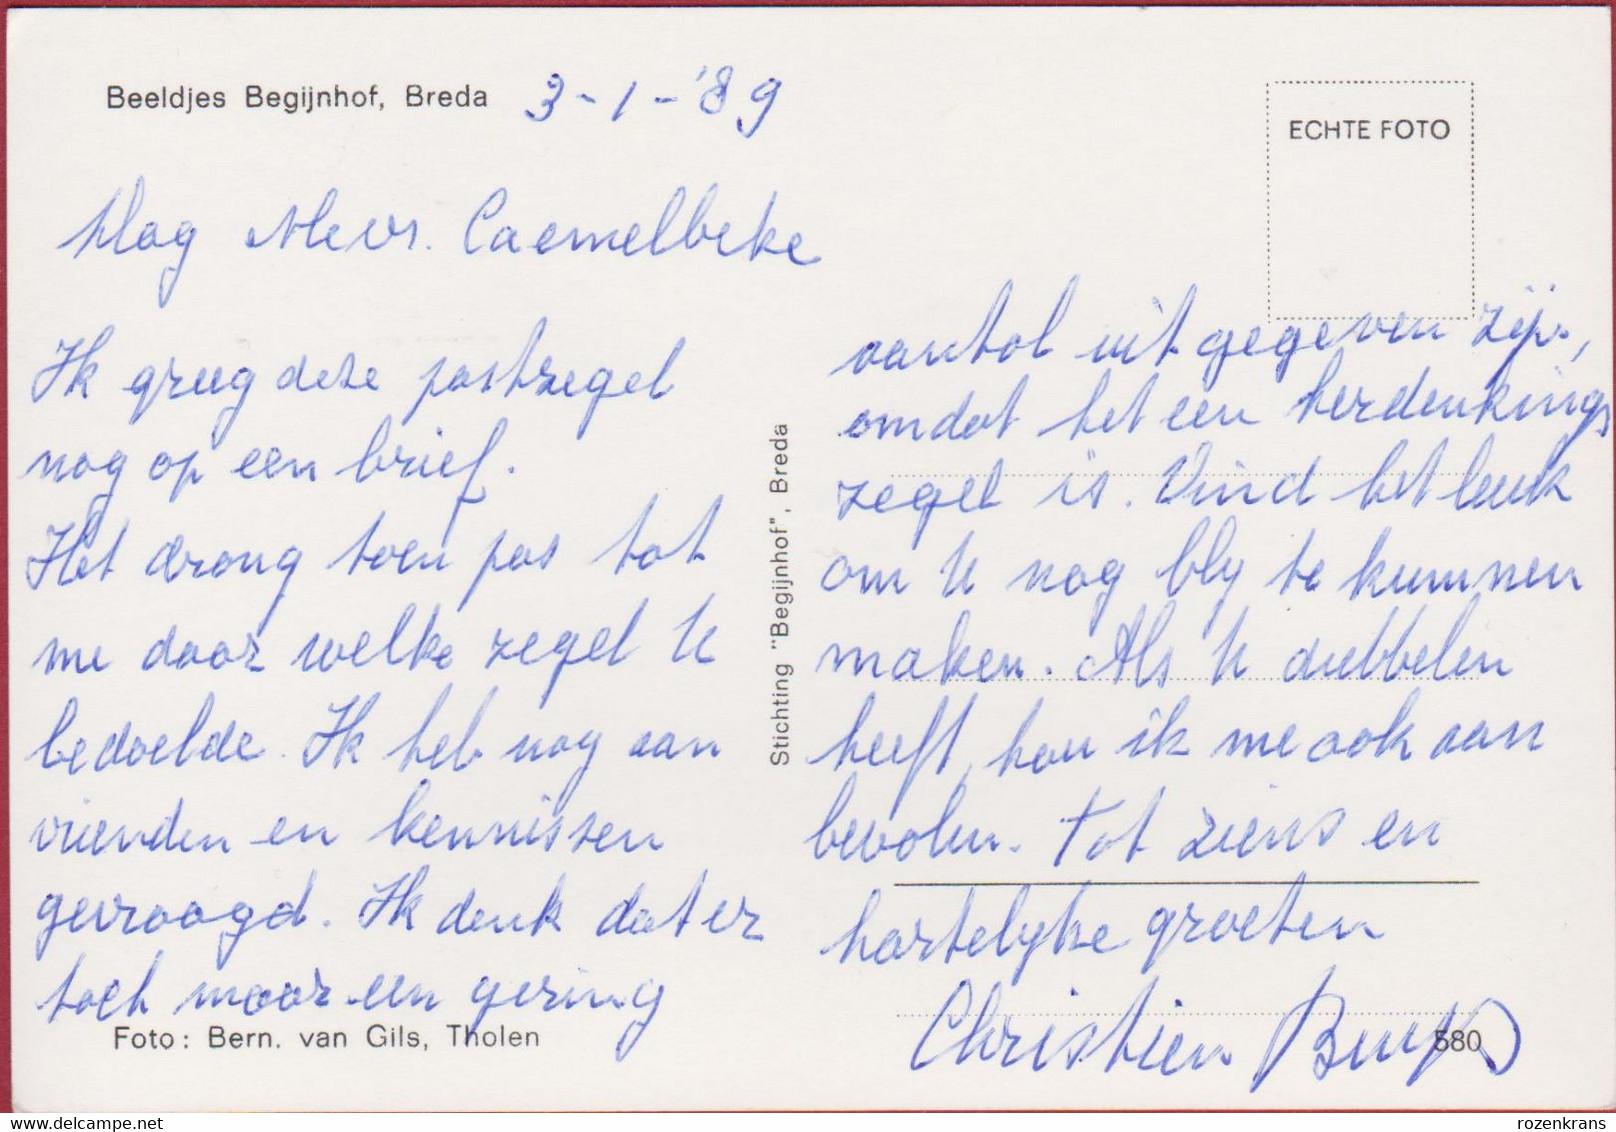 Beeldjes Begijnhof, Breda 3-1-'89
ECHTE FOTO
Dag Mevr. Caemelbeke
Ik greeg deze postzegel
nog op een brief.
Het drong toen pas tot
me door welke zegel U
bedoelde. Ik heb nog aan
vrienden en kennissen
gevraagd. Ik denk dat er
toch maar een gering
Foto: Bern. van Gils, Tholen
Stichting "Begijnhof", Breda
aantal uitgegeven zijn,
omdat het een herdenkings
zegel is. Vind het leuk
om U nog bly te kunnen
maken. Als U dubbelen
heeft, hou ik me ook aan
bevolen. Tot ziens en
hartelyke groeten
Christien Buys
580
rozenkrans
www.delcampe.net